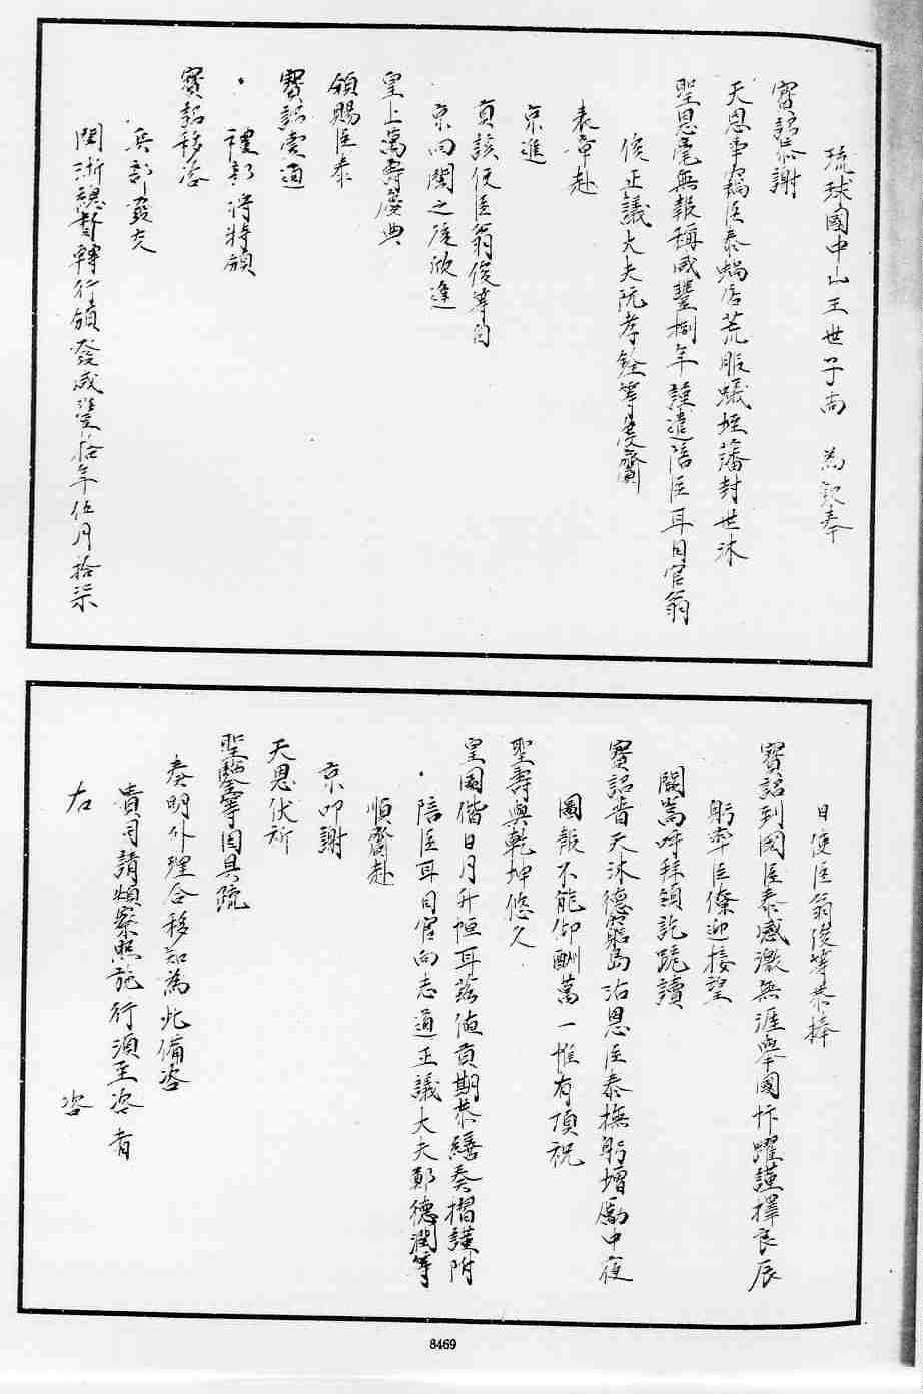 琉球國中山王世子尚 為欽奉
寶詔恭謝
天恩事竊臣泰蝸居荒服蟻垤藩封世沐
聖恩毫無報稱咸豐捌年謹遣陪臣耳目官翁
俊正議大夫阮孝銓等虔齎
表章赴
京進
貢該使臣翁俊等自
京回閩之度欣逢
皇上萬壽慶典
領賜臣泰
寶詔壹道
禮部將將頒
寶詔移咨
兵部發交
閩浙總督轉行頒發咸豐拾年伍月拾柒
日使臣翁俊等恭捧
寶詔到國臣泰感激無涯舉國忭躍謹擇良辰
躬率臣僚迎接望
闕嵩呼拜領訖跪讀
寶詔普天沐德窮島沾恩臣泰撫躬增勵中夜
圖報不能仰酬萬一惟有頂祝
聖壽與乾坤悠久
皇圖偕日月升恒耳茲值貢期恭繕奏摺謹附
陪臣耳目官向志道正議大夫鄭德潤等
順齎赴
京叩謝
天恩伏祈
聖鑒等因具疏
奏明外理合移知為此備咨
貴司請煩察照施行須至咨者
右 咨
8469